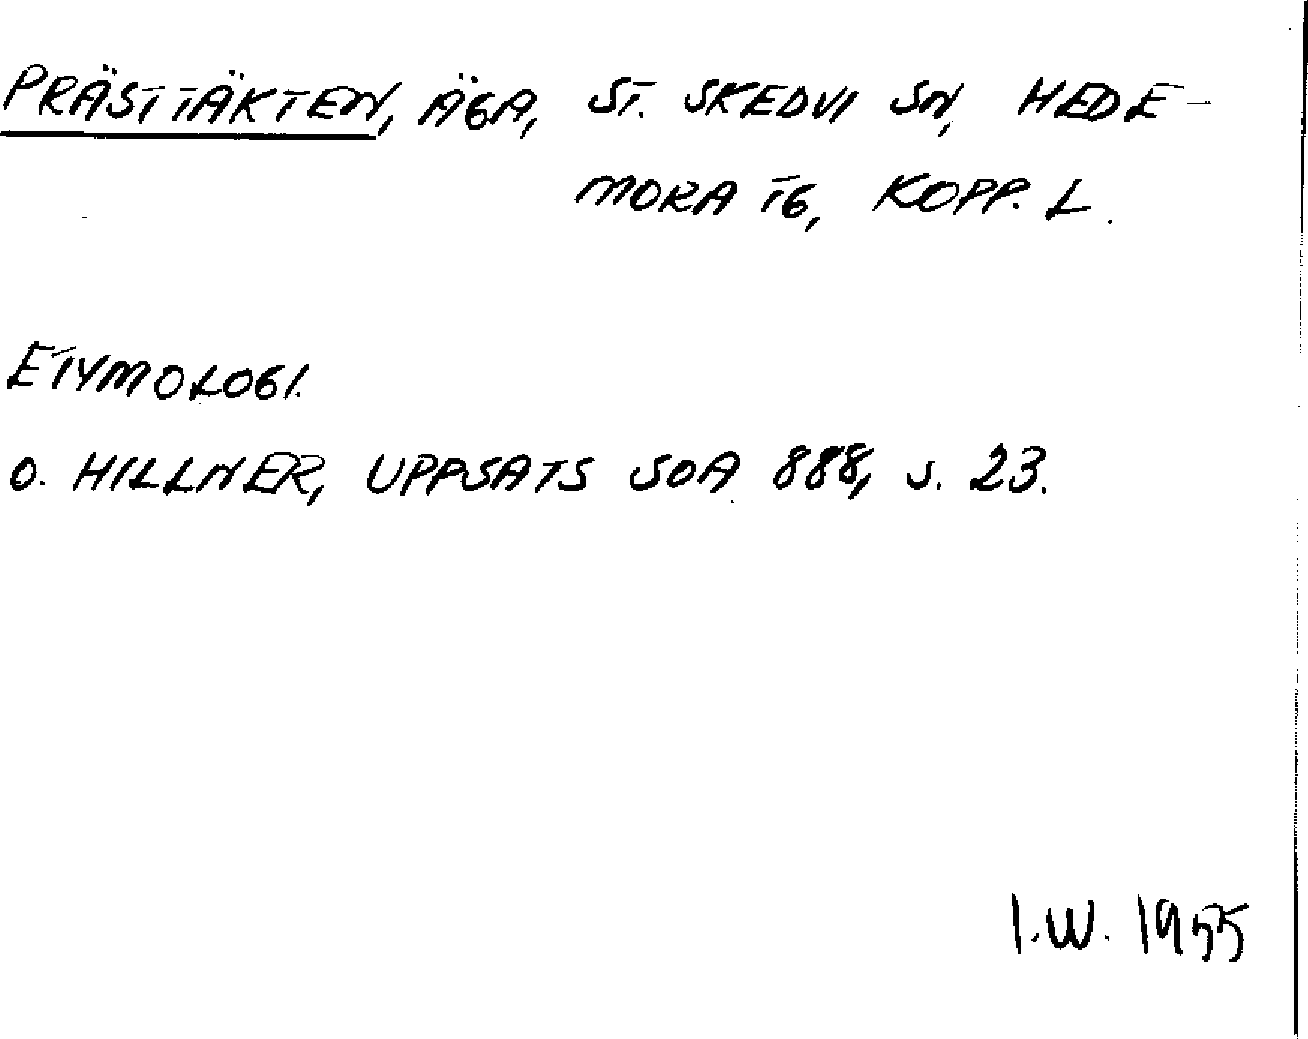 PRÄSTTÄKTEN, ÄGA, ST. SKEDVI SN, HEDE-
MORA TG, KOPP. L.
ETYMOLOGI.
O. HILLNER, UPPSATS SOA 888, s. 23.
I.W. 1955